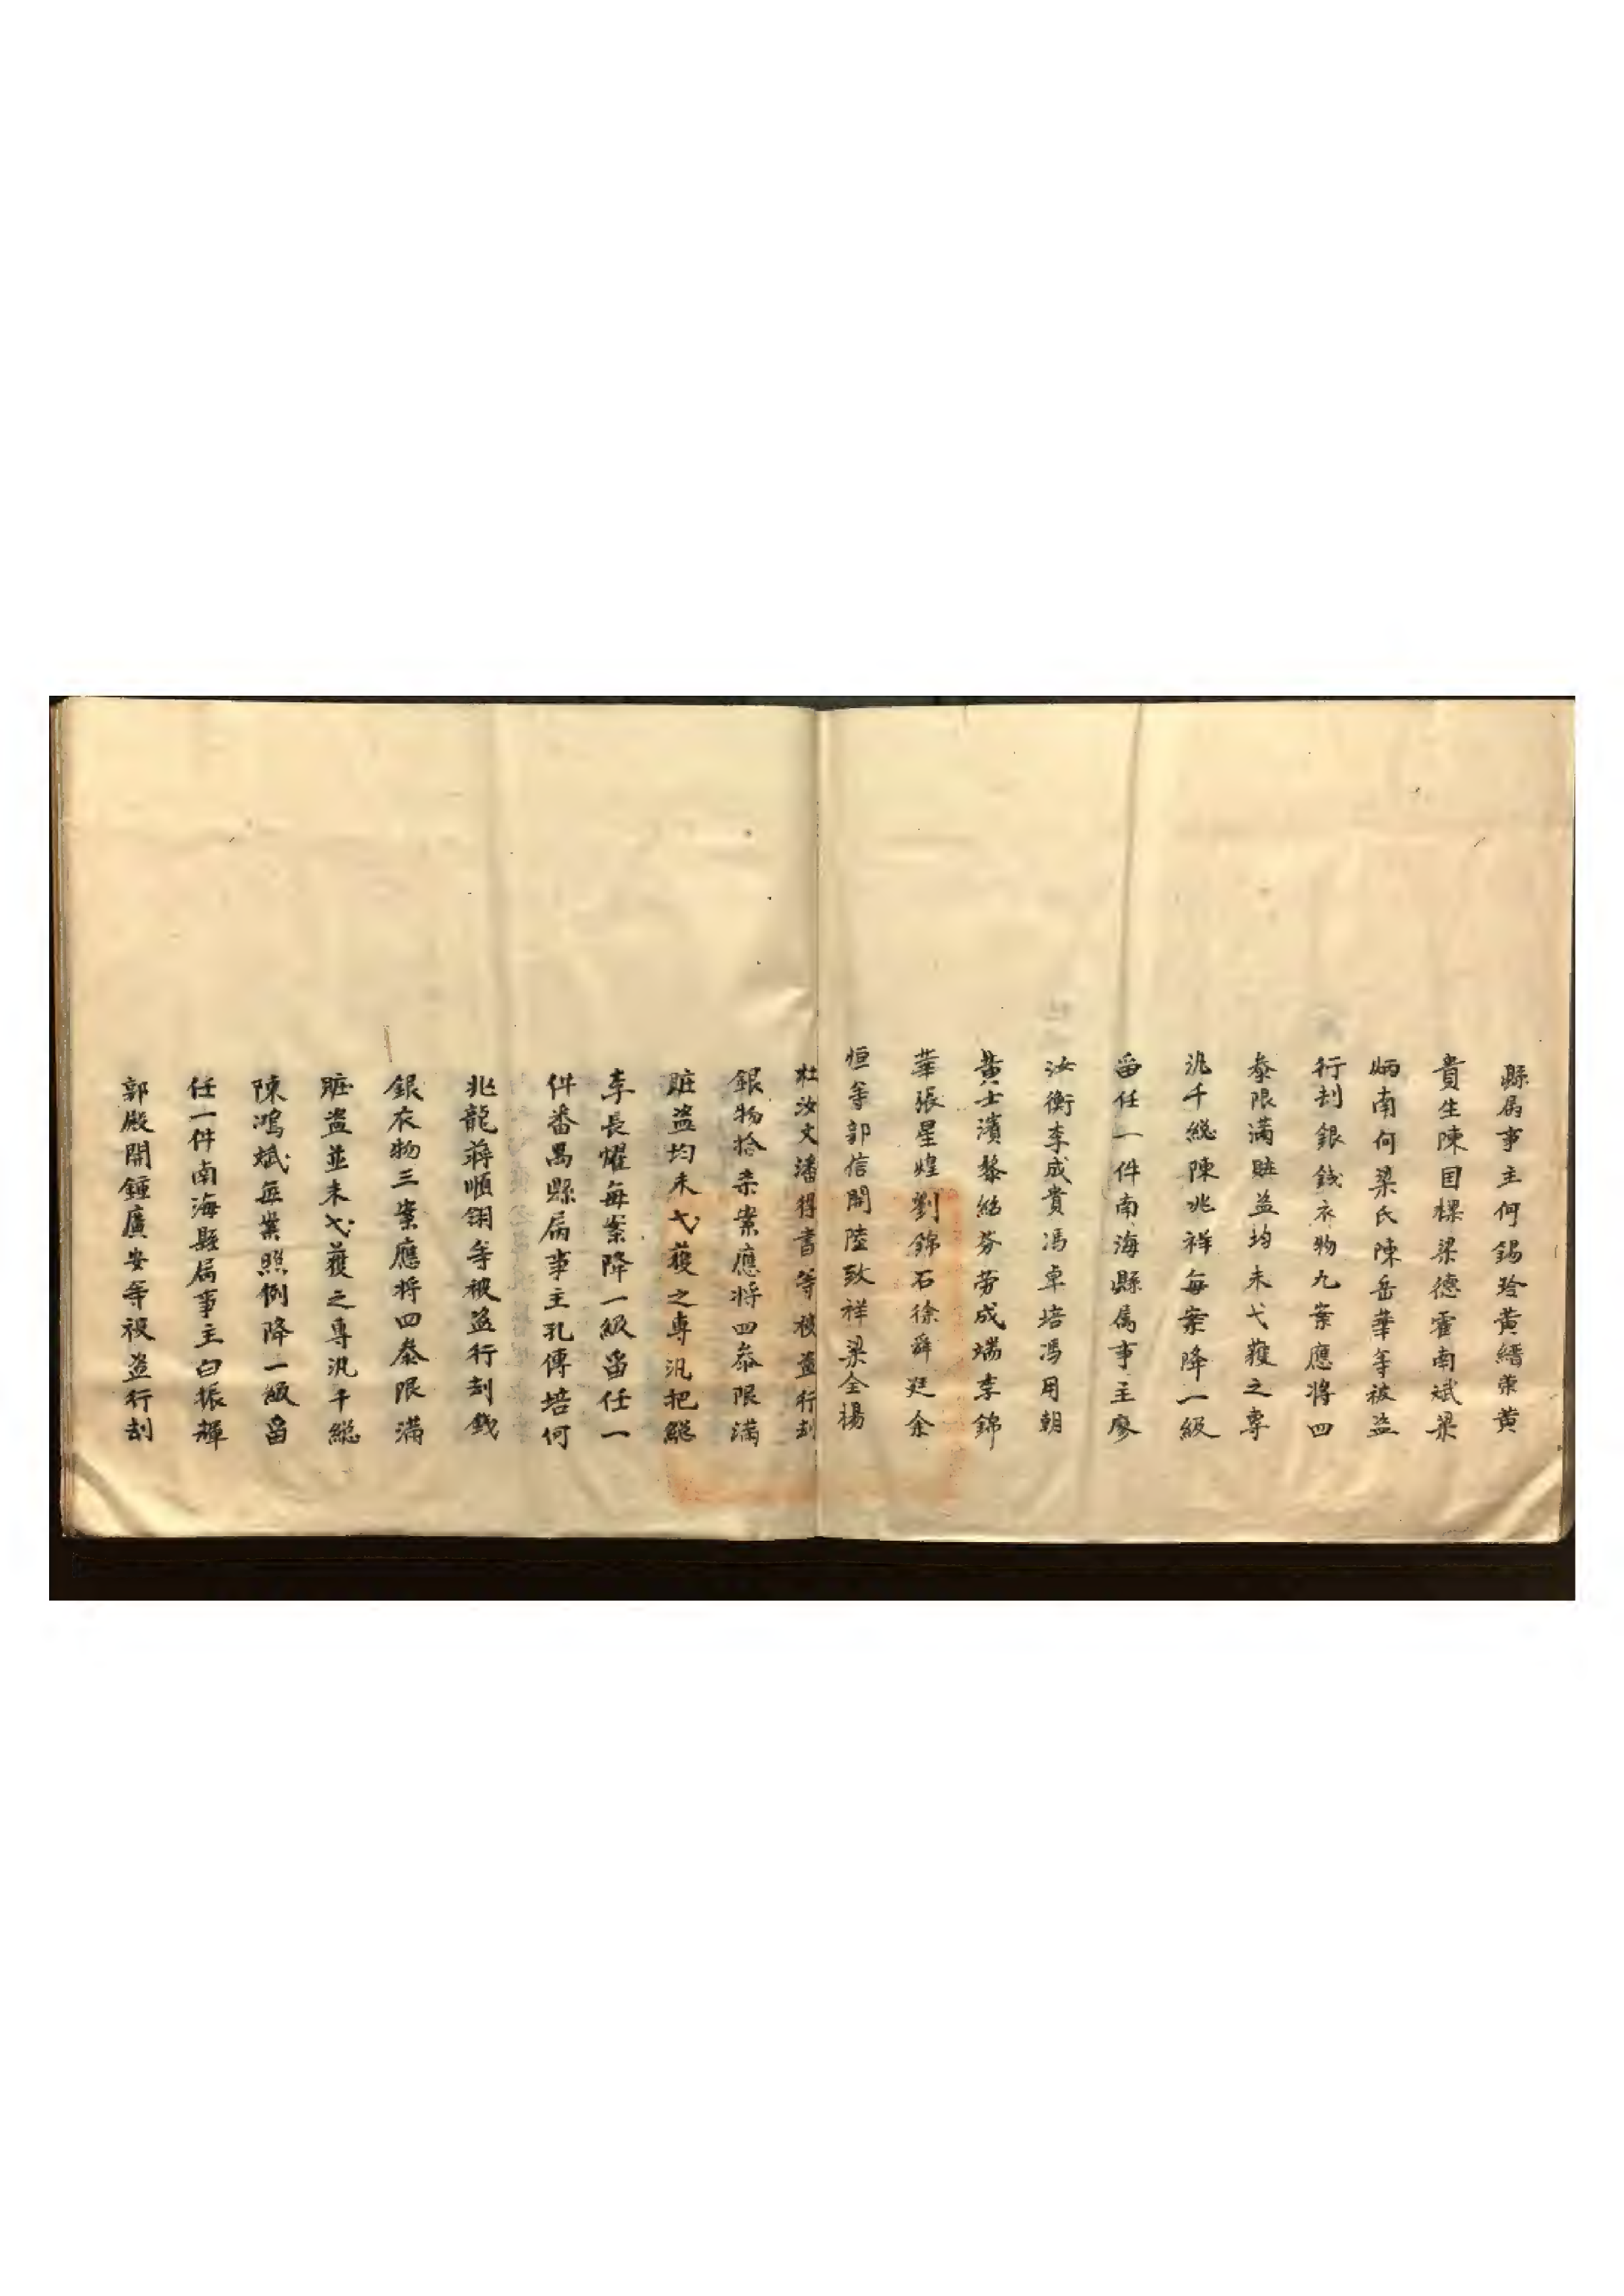 縣屬事主何錫玲黃縉東黃
貴生陳国樑梁德霍南斌梁
炳南何梁氏陳岳華等被盗
行刦銀錢衣物九案應將四
叅限滿賍盗均未弋獲之專
汛千総陳兆祥每案降一級
畱任一件南海縣屬事主廖
汝衡李成貴馮卓培馮用朝
黃士濱黎紹芬勞成端李錦
華張星煌劉錦石徐舜廷余
恒等郭信開陸致祥梁全楊
杜汝文潘得書等被盗行刦
銀物拾柒案應將四叅限滿
賍盗均未弋獲之專汛把総
李長燿每案降一級畱任一
件番禺縣屬事主孔傳培何
兆龍蔣順開等被盗行刦錢
銀衣物三案應将四叅限滿
賍盗並未弋獲之專汛千総
陳鴻斌每案照例降一級畱
任一件南海縣屬事主白振輝
郭殿開鍾廣安等被盗行刦